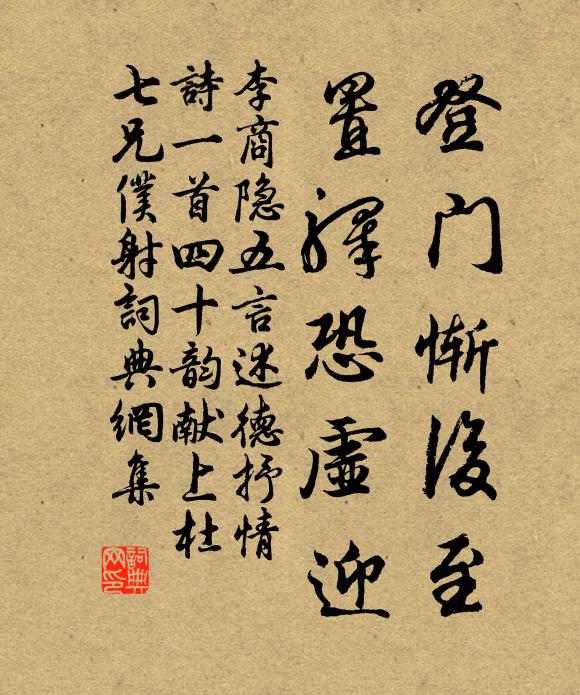 登门慚後至
置驛恐虛迎
李商隐五言述德抒情
詩一首四十韵献上杜
七兄僕射詞典網集
詞典网印